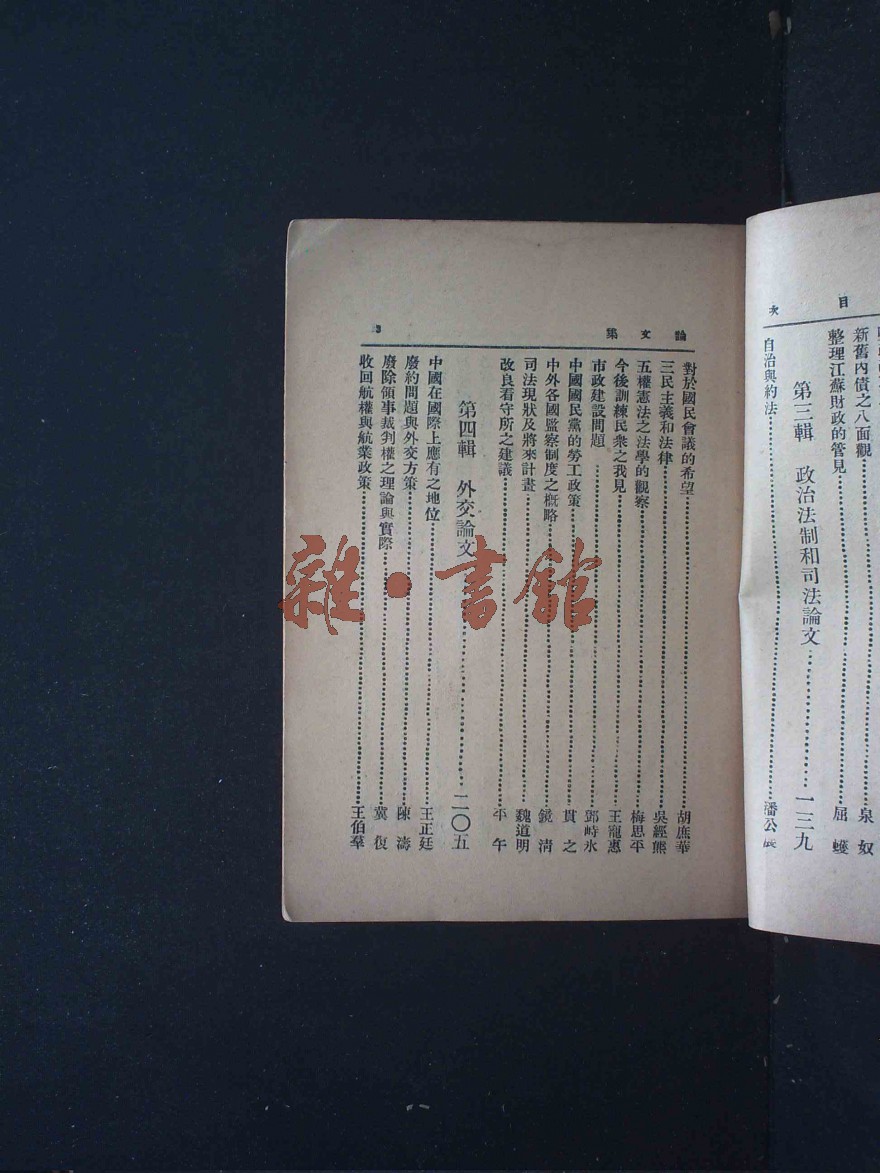 目次
新舊內債之八面觀……泉奴
整理江蘇財政的管見……屈蠖
第三輯 政治法制和司法論文……一三九
自治與約法……潘公展
論文集
3
對於國民會議的希望……胡庶華
三民主義和法律……吳經熊
五權憲法之法學的觀察……梅思平
今後訓練民衆之我見……王寵惠
市政建設問題……鄧峙冰
中國國民黨的勞工政策……貫之
中外各國監察制度之概略……鏡清
司法現狀及將來計畫……魏道明
改良看守所之建議……平午
第四輯 外交論文……二〇五
中國在國際上應有之地位……王正廷
廢約問題與外交方策……陳濤
廢除領事裁判權之理論與實際……冀復
收回航權與航業政策……王伯羣
雜·書館